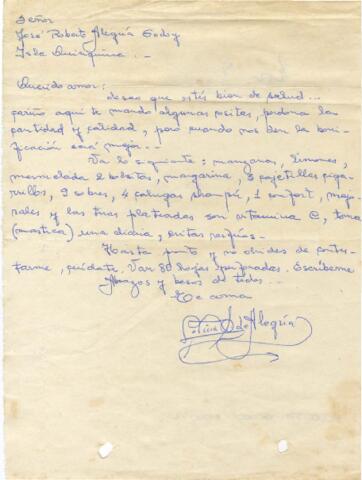 Señor
José Roberto Alegría Godoy
Isla Quiriquina.-
Querido amor:
deseo que estés bien de salud...
cariño aquí te mando algunas cositas, perdona la
cantidad y calidad, pero cuando nos den la boni-
ficación será mejor...
Va lo siguiente: manzanas, limones,
mermelada 2 bolsitas, margarina, 5 cajetillas ciga-
rrillos, 9 sobres, 4 calugas shampú, 1 confort, mejo-
rales y las tiras plateadas son vitamina C, toma
(mastica) una diaria, evitas resfríos.-
Hasta pronto y no olvides de contes-
tarme, cuídate. Van 80 hojas perforadas. Escríbeme
Abrazos y besos de todos...
Te ama
de Alegría